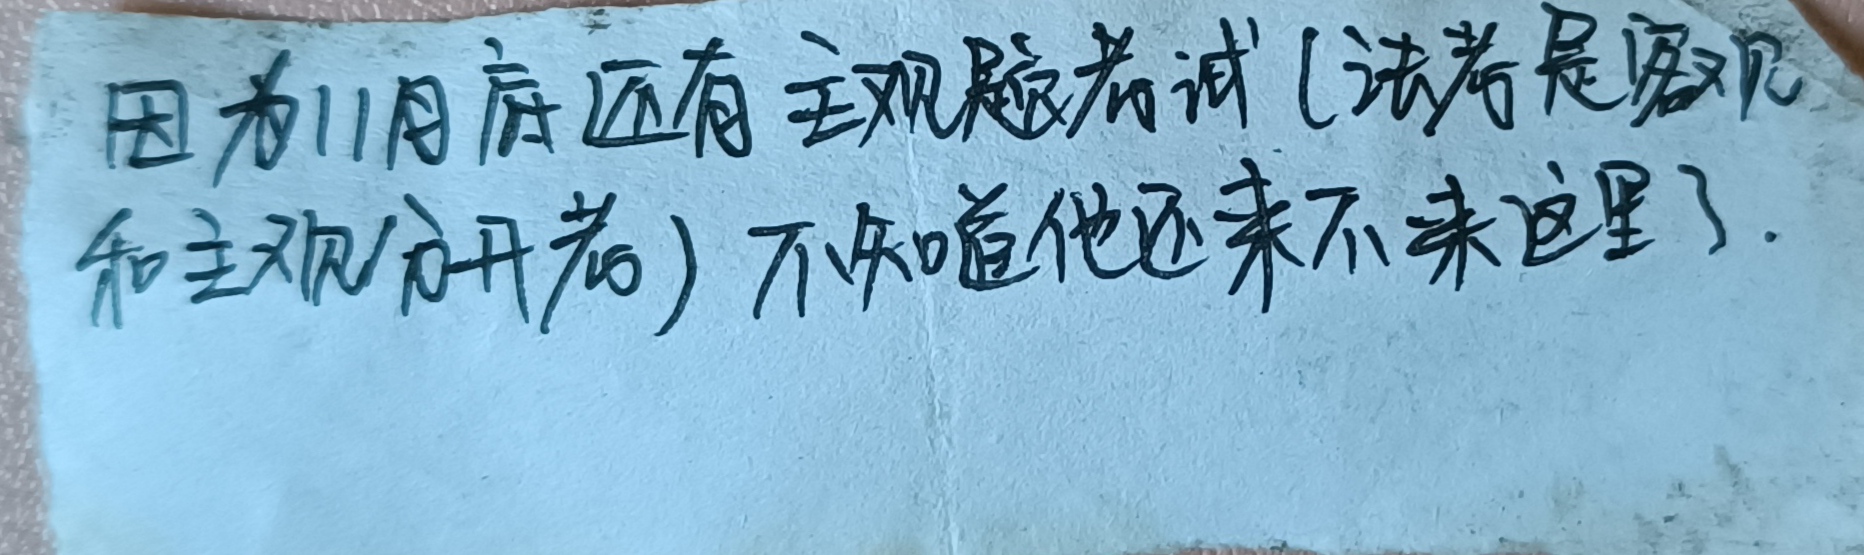 因为11月底还有主观题考试（法考是客观
和主观分开考）不知道他还来不来这里了.